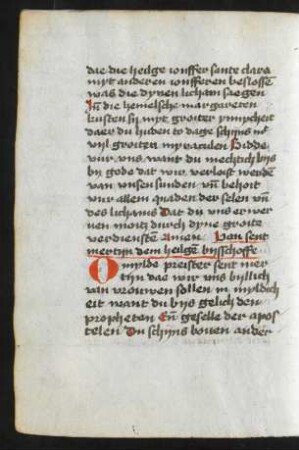 dae die heilge ionffer sante clara
myt anderen ionfferen beslossē
was die dynen licham saegen
In die hemelsche margareten
kusten sij myt groiter ynnicheit
daer du huden to dage schijns mȝ
vyl groiten myraculen Bidde
vur vns want du mechtich bijs
by gode dat wir verloist werdē
van vnsen sunden vn̄ behoit
vur allem quaden der selen vn̄
des lichams Dat du vns erwer
uen moitz durch dyne groite
verdienstē Amen Van sent
mertijn dem heilgē bijsschoffe
O mylde preister sent mer
tijn dae wir vns billich
van vrouwen sollen in myldich
eit want du bijs gelich den
propheten En̄ geselle der apos
telen Du schijns bouen ander